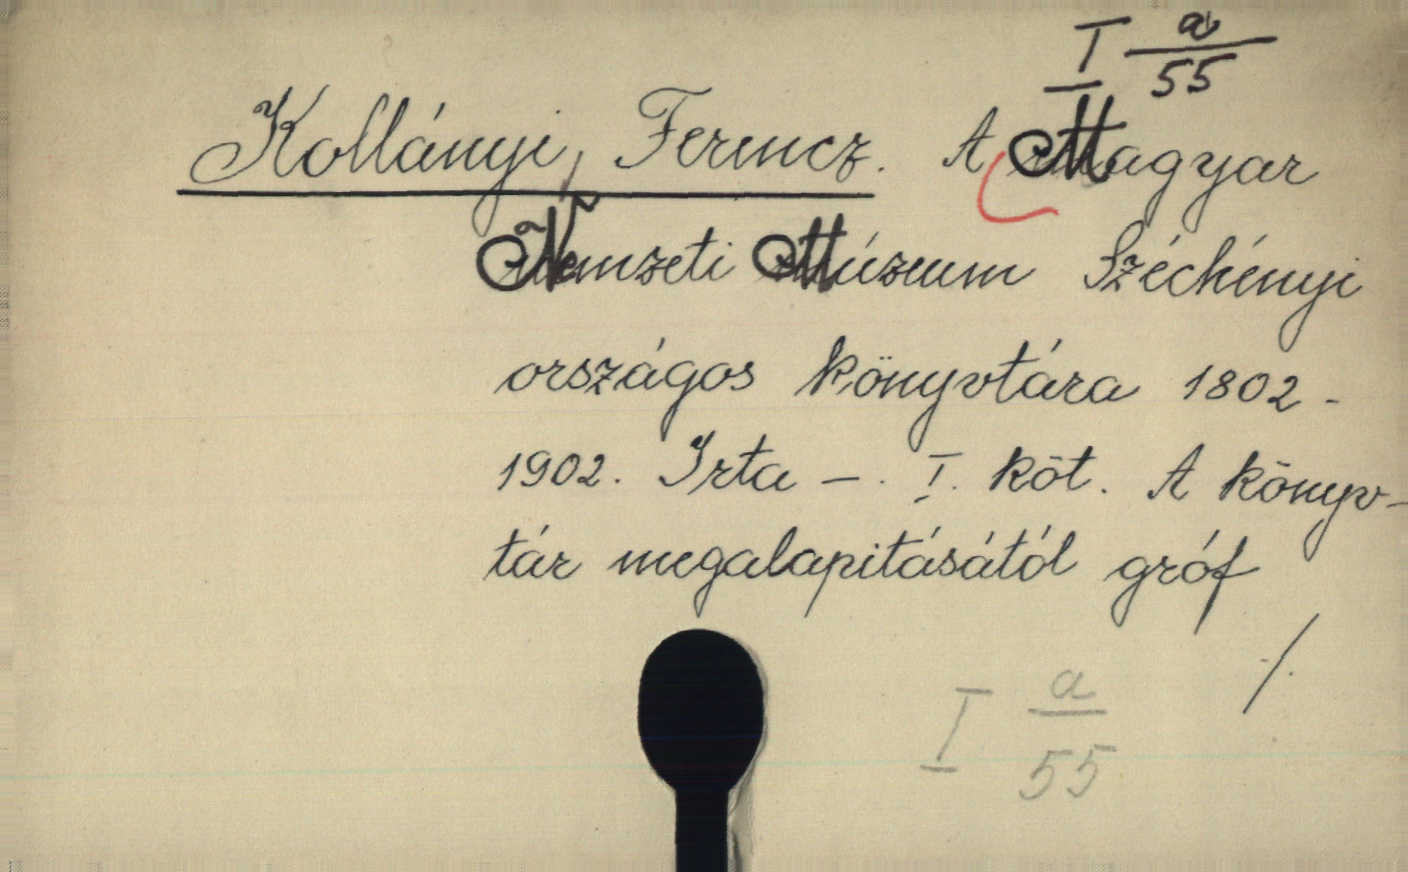 I a/55
Kollányi, Ferencz. A Magyar
Nemzeti Múzeum Széchényi
országos könyvtára 1802-
1902. Irta -. I. köt. A könyv-
tár megalapitásától gróf
./.
I a/55